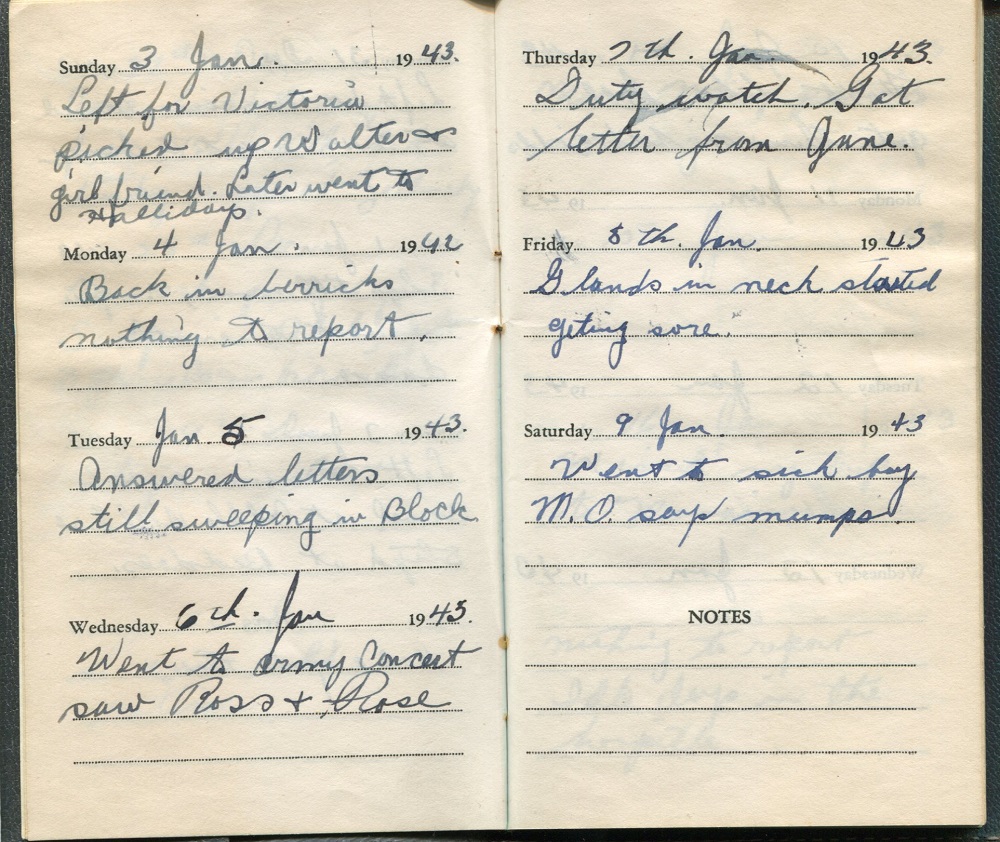 Sunday 3 Jan. 1943.
Left for Victoria
picked up Walter &
girl friend. Later went to
Hallidays.
Monday 4 Jan. 1942
Back in berricks
nothing to report.
Tuesday Jan 5 1943.
Answered letters
still sweeping in Block
Wednesday 6th. Jan 1943.
Went to army Concert
saw Ross & Rose
Thursday 7th. Jan. 1943.
Duty watch. Got
letter from June.
Friday 8th. Jan. 1943
Glands in neck started
geting sore.
Saturday 9 Jan. 1943
Went to sick bay
M.O. says mumps.
NOTES